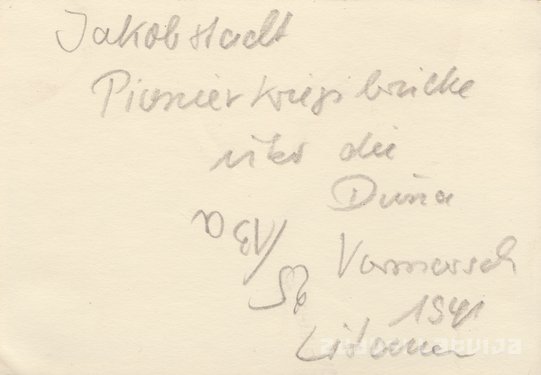 Jakobstadt
Pionierkriegsbrücke
über die
Düna
Vormarsch
1941
Litauen